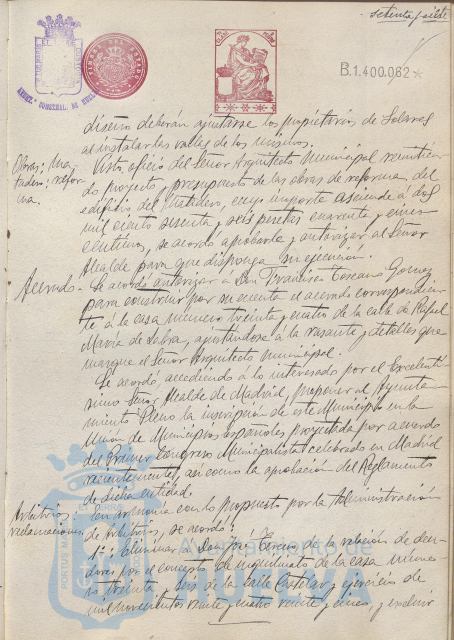 setenta y siete
B.1.400.062
diseño deberán ajustarse los propietarios de Solares
al instalar las vallas de los mismos.
Obras: Ma-
tadero; refor-
ma.
Visto, oficio del Señor Arquitecto Municipal remitien-
do proyecto y presupuesto de las obras de reforma del
edificio del Matadero, cuyo importe asciende á dos
mil ciento sesenta y seis pesetas cuarenta y cinco
centimos, se acordo aprobarlo y autorizar al Señor
Alcalde para que disponga su ejecución.
Acerado.
Se acordó autorizar á Don Francisco Toscano Gomez
para construir por su cuenta el acerado correspondien-
te á la casa número treinta y cuatro de la calle de Rafael
María de Labra, ajustándose á la rasante y detalles que
marque el Señor Arquitecto Municipal.
Se acordo, accediendo á lo interesado por el Excelentí-
simo Señor Alcalde de Madrid, proponer al Ayunta-
miento Pleno la inscripcion de este Municipio en la
Union de Municipios españoles proyectada por acuerdo
del Primer Congreso Municipalista celebrado en Madrid
recientemente, así como la aprobacion del Reglamento
de dicha entidad.
Arbitrios:
reclamaciones
En armonía con lo propuesto por la Administración
de Arbitrios, se acordó:
1º: Eliminar a Don José Tercero de la relacion de deu-
dores por el concepto de inquilinato de la casa núme-
ro treinta y seis de la calle Castelar y ejercicio de
mil novecientos veinte y cuatro veinte y cinco, y excluir
Ayuntamiento de
HUELVA